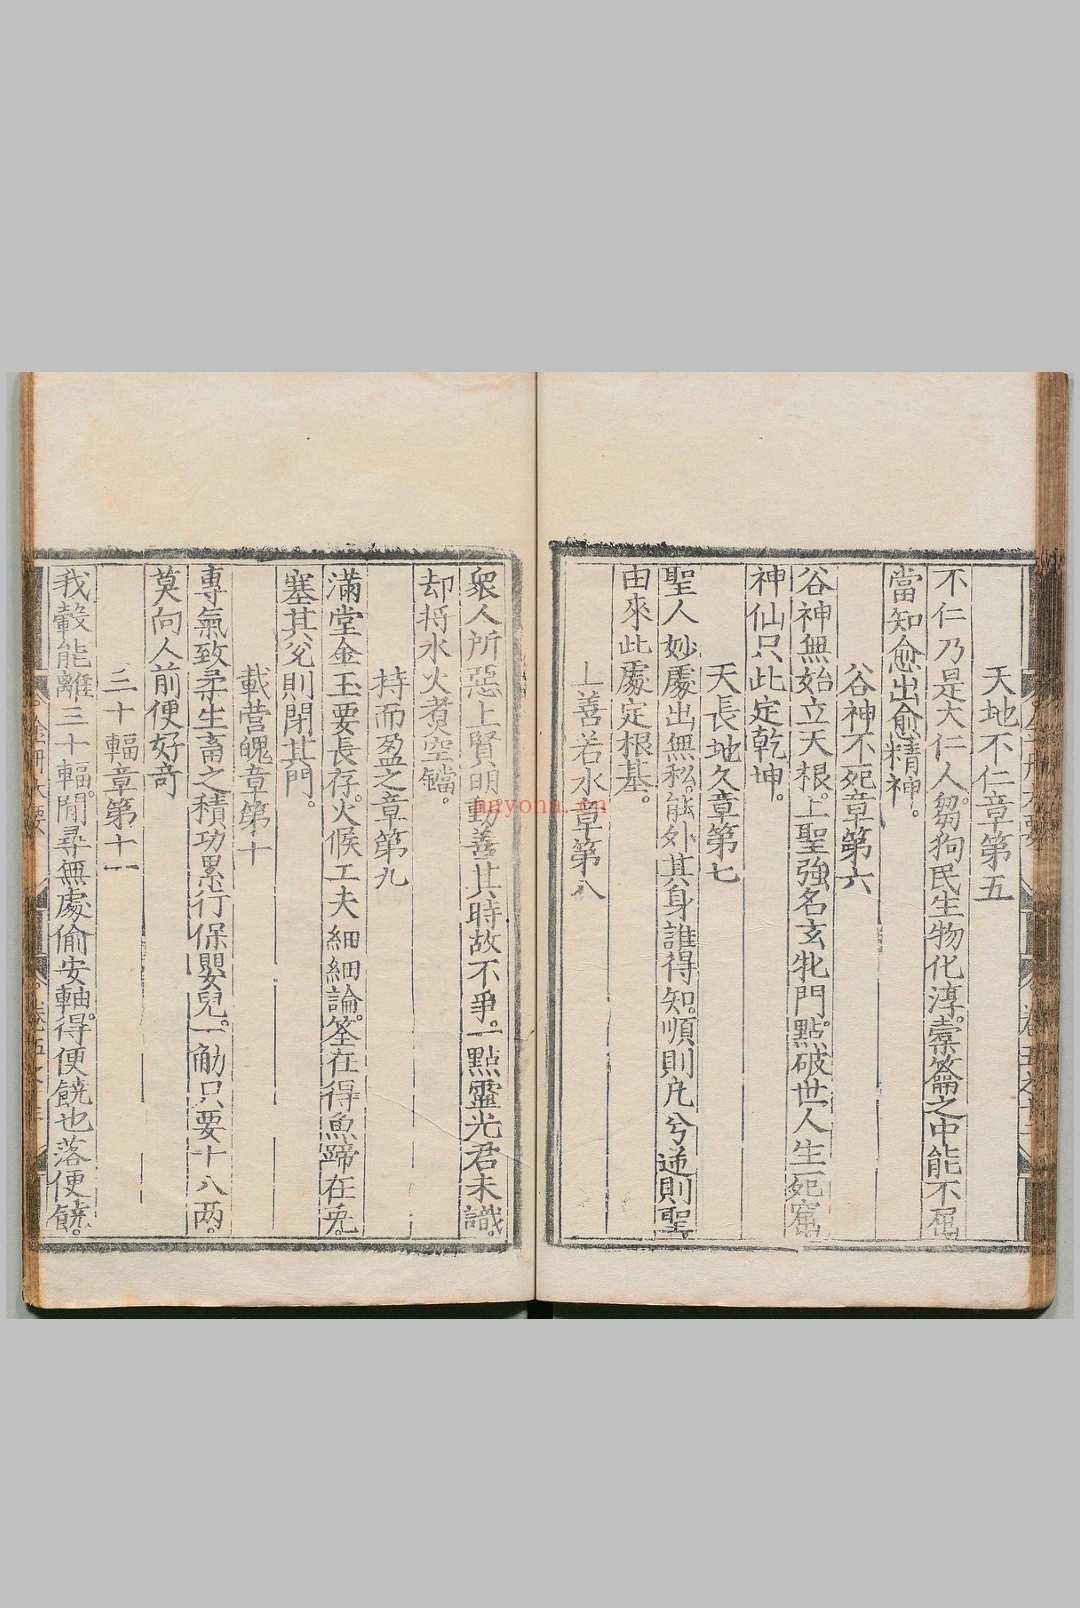 天地不仁章第五
不仁乃是大仁人。芻狗民生物化淳。橐籥之中能不屈
當知愈出愈精神。
谷神不死章第六
谷神無始立天根。上聖強名玄牝門。點破世人生死窟
神仙只此定乾坤。
天長地久章第七
聖人妙處出無私。能外其身誰得知。順則凡兮逆則聖
由來此處定根基。
上善若水章第八
衆人所惡上賢明動善其時故不爭。一點靈光君未識。
却將水火煑空鐺。
持而盈之章第九
滿堂金玉要長存。火候工夫細細論。筌在得魚蹄在兎。
塞其兌則閉其門。
載营魄章第十
專氣致柔生畜之積功累行保嬰兒。一觔只要十八两。
莫向人前便好竒
三十輻章第十一
我轂能離三十輻。閒尋無處偷安軸。得便饒也落便饒。
nayona.cn